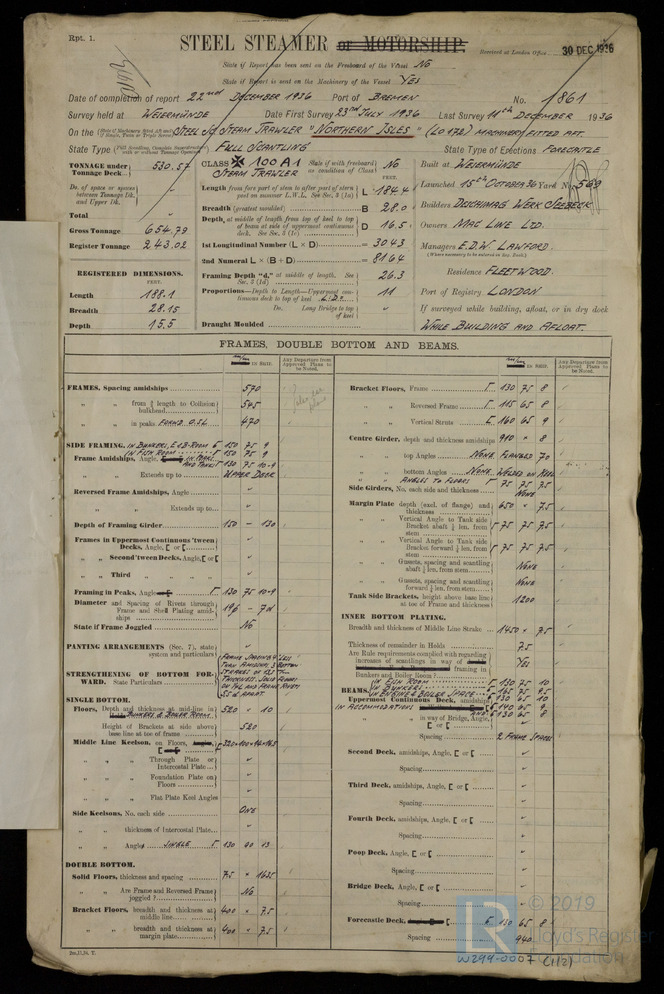 Rpt. 1.
STEEL STEAMER or MOTORSHIP.
Received at London Office 30 DEC 1936
State if Report has been sent on the Freeboard of the Vessel No
State if Report is sent on the Machinery of the Vessel YES
Date of completion of report 22nd DECEMBER 1936 Port of BREMEN No. 1861
Survey held at WESERMÜNDE Date First Survey 23rd JULY 1936 Last Survey 11th DECEMBER 1936
On the STEEL SC STEAM TRAWLER "NORTHERN ISLES" (LO 172) MACHINERY FITTED AFT.
State Type FULL SCANTLING State Type of Erections FORECASTLE
TONNAGE under Tonnage Deck 530.57
Do. of space or spaces between Tonnage Dk. and Upper Dk.
Total
Gross Tonnage 654.79
Register Tonnage 243.02
REGISTERED DIMENSIONS.
FEET.
Length 188.1
Breadth 28.15
Depth 15.5
CLASS 100A1 State if with freeboard as condition of Class No
STEAM TRAWLER FEET.
Length from fore part of stem to after part of stern post on summer L.W.L. See Sec. 3 (1a) L 184.4
Breadth (greatest moulded) B 28.0
Depth, at middle of length from top of keel to top of beam at side of uppermost continuous deck. See Sec. 3 (1c) D 16.5
1st Longitudinal Number (L × D) = 3043
2nd Numeral L × (B + D) = 8164
Framing Depth "d," at middle of length. See Sec. 3 (1d) 26.3
Proportions—Depth to Length—Uppermost continuous deck to top of keel 11
Do. Long Bridge to top of keel
Draught Moulded
Built at WESERMÜNDE
Launched 15th OCTOBER 36 Yard No 569
Builders DESCHIMAG WERK SEEBECK
Owners MAC LINE LTD.
Managers E.D.W. LAWFORD.
(Where necessary to be entered in Reg. Book.)
Residence FLEETWOOD.
Port of Registry LONDON
If surveyed while building, afloat, or in dry dock
WHILE BUILDING AND AFLOAT.
FRAMES, DOUBLE BOTTOM AND BEAMS.
in SHIP. Any Departure from Approved Plans to be Noted.
in SHIP. Any Departure from Approved Plans to be Noted.
FRAMES, Spacing amidships 570
" " from 3/5 length to Collision bulkhead 545
" " in peaks FORWD 0.5L 470
SIDE FRAMING. IN BUNKERS, E & B-ROOM 150 75 9
IN FISH ROOM 150 75 9
Frame Amidships, Angle, IN PEAKS AND TANKS 130 75 10-9
" " Extends up to UPPER DECK
Reversed Frame Amidships, Angle
" " Extends up to
Depth of Framing Girder 150 - 130
Frames in Uppermost Continuous 'tween Decks, Angle, [ or [
" " Second 'tween Decks, Angle, [ or [
" " Third " " " "
Framing in Peaks, Angle 130 75 10-9
Diameter and Spacing of Rivets through Frame and Shell Plating amidships 19φ - 7d
State if Frame Joggled No
PANTING ARRANGEMENTS (Sec. 7), state system and particulars
STRENGTHENING OF BOTTOM FORWARD. State Particulars
SINGLE BOTTOM.
Floors, Depth and thickness at mid-line in BUNKERS & BOILER ROOM 520 × 10
Height of Brackets at side above base line at toe of frame 520
Middle Line Keelson, on Floors,
" " Through Plate or Intercostal Plate
" " Foundation Plate on Floors
" " Flat Plate Keel Angles
Side Keelsons, No. each side ONE
" " thickness of Intercostal Plate
" " Angles SINGLE 130 90 13
DOUBLE BOTTOM.
Solid Floors, thickness and spacing 7.5 × 1635
" " Are Frame and Reversed Frame joggled? No
Bracket Floors, breadth and thickness at middle line 400 × 7.5
" " breadth and thickness at margin plate 400 × 7.5
Bracket Floors, Frame 130 75 8
" " Reversed Frame 115 65 8
" " Vertical Struts 160 65 9
Centre Girder, depth and thickness amidships 910 × 8
" " top Angles NONE FLANGED 70
" " bottom Angles NONE. WELDED ON KEEL
" " ANGLES TO FLOORS 75 75 7.5
Side Girders, No. each side and thickness NONE
Margin Plate depth (excl. of flange) and thickness 650 × 7.5
" " Vertical Angle to Tank side Bracket abaft ¼ len. from stem 75 75 7.5
" " Vertical Angle to Tank side Bracket forward ¼ len. from stem 75 75 7.5
" " Gussets, spacing and scantling abaft ¼ len. from stem NONE
" " Gussets, spacing and scantling forward ¼ len. from stem NONE
Tank Side Brackets, height above base line at toe of Frame and thickness 1200
INNER BOTTOM PLATING.
Breadth and thickness of Middle Line Strake 1450 × 7.5
Thickness of remainder in Holds 7.5
Are Rule requirements complied with regarding increases of scantlings in way of framing in Bunkers and Boiler Room? YES
BEAMS. IN FISH ROOM 130 75 10
IN BUNKERS
IN ENGINE & BOILER SPACE
Uppermost Continuous Deck, amidships,
IN ACCOMMODATION
" " in way of Bridge, Angle, [ or [ 130 65 8
Spacing 2 FRAME SPACES
Second Deck, amidships, Angle, [ or [
Spacing
Third Deck, amidships, Angle, [ or [
Spacing
Fourth Deck, amidships, Angle, [ or [
Spacing
Poop Deck, Angle, [ or [
Spacing
Bridge Deck, Angle, [ or [
Spacing
Forecastle Deck, 130 65 8
Spacing 940
© 2019
Lloyd's Register
Foundation
W299-0007 (1/2)